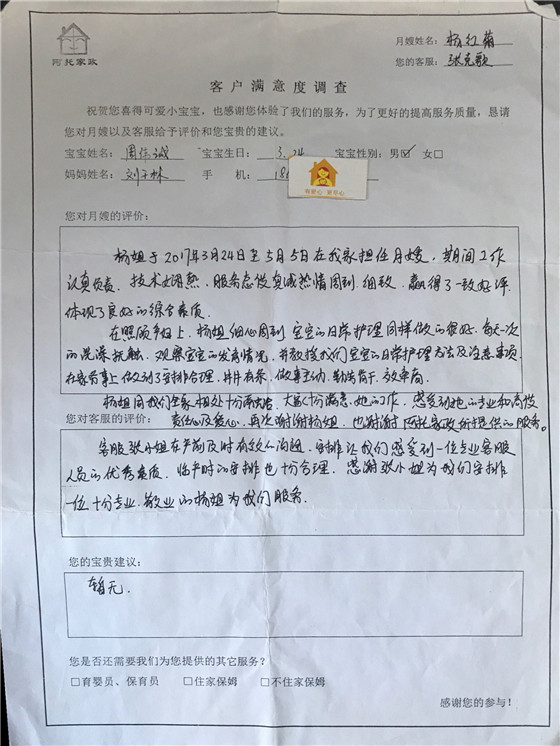 阿托家政
月嫂姓名：杨红菊
您的客服：张克歌
客户满意度调查
祝贺您喜得可爱小宝宝，也感谢您体验了我们的服务，为了更好的提高服务质量，恳请
您对月嫂以及客服给予评价和您宝贵的建议。
宝宝姓名：周 诚 宝宝生日：3.24 宝宝性别：男☑ 女□
妈妈姓名：刘 林 手 机：18
有爱心 更尽心
您对月嫂的评价：
杨姐于2017年3月24日至5月5日在我家担任月嫂，期间工作
认真负责、技术娴熟、服务态度真诚热情周到、细致，赢得了一致好评，
体现了良好的综合素质。
在照顾产妇上，杨姐细心周到，宝宝的日常护理同样做的很好，每天一次
的洗澡抚触，观察宝宝的发育情况，并教授我们宝宝的日常护理方法及注意事项，
在家务事上做到了安排合理，井井有条，做事主动，勤劳肯干，效率高。
杨姐同我们全家相处十分融洽，大家十分满意她的工作，感受到她的专业和高度
您对客服的评价：责任心及爱心，再次谢谢杨姐，也谢谢阿托家政所提供的服务。
客服张小姐在产前及时有效的沟通，安排让我们感受到一位专业客服
人员的优秀素质，临产时的安排也十分合理，感谢张小姐为我们安排
一位十分专业、敬业的杨姐为我们服务。
您的宝贵建议：
暂无.
您是否还需要我们为您提供的其它服务？
□育婴员、保育员 □住家保姆 □不住家保姆
感谢您的参与！